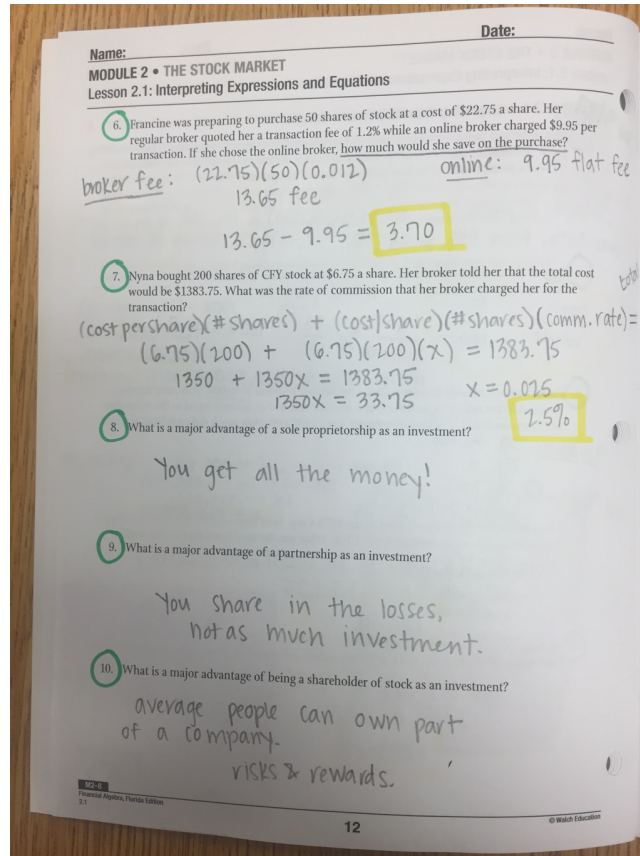 Name:
Date:
MODULE 2 • THE STOCK MARKET
Lesson 2.1: Interpreting Expressions and Equations
6. Francine was preparing to purchase 50 shares of stock at a cost of $22.75 a share. Her
regular broker quoted her a transaction fee of 1.2% while an online broker charged $9.95 per
transaction. If she chose the online broker, how much would she save on the purchase?
broker fee: (22.75)(50)(0.012) online: 9.95 flat fee
13.65 fee
13.65 - 9.95 = 3.70
7. Nyna bought 200 shares of CFY stock at $6.75 a share. Her broker told her that the total cost
would be $1383.75. What was the rate of commission that her broker charged her for the
transaction?
total
(cost per share)(# shares) + (cost/share)(# shares)(comm. rate) =
(6.75)(200) + (6.75)(200)(x) = 1383.75
1350 + 1350x = 1383.75
x = 0.025
1350x = 33.75
2.5%
8. What is a major advantage of a sole proprietorship as an investment?
You get all the money!
9. What is a major advantage of a partnership as an investment?
You share in the losses,
not as much investment.
10. What is a major advantage of being a shareholder of stock as an investment?
average people can own part
of a company.
risks & rewards.
M2-8
Financial Algebra, Florida Edition
2.1
12
© Walch Education